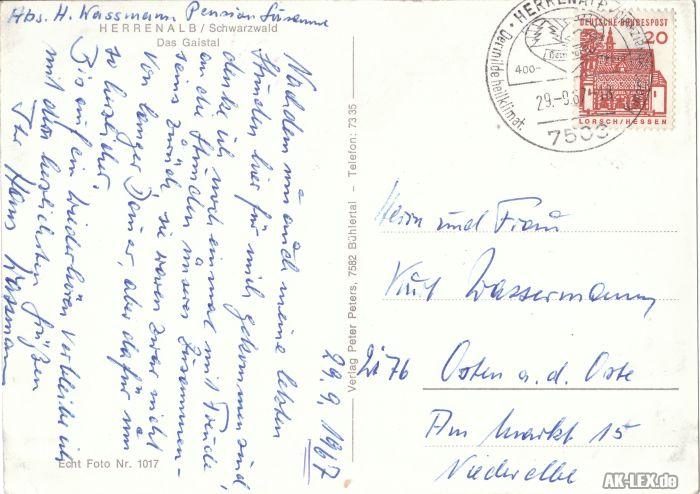 Abs. H. Wassmann Pension Susanne
HERRENALB / Schwarzwald
Das Gaistal
29.9.1967
Nachdem nun auch meine letzten
Stunden hier für mich gekommen sind
denke ich noch einmal mit Freude
an die Stunden unseres Zusammen-
seins zurück, sie waren zwar nicht
von langer Dauer, aber dafür um
so herzlicher.
Bis auf ein Wiederhören verbleibe ich
mit den herzlichsten Grüßen
Ihr Hans Wassmann
Echt Foto Nr. 1017
Verlag Peter Peters, 7582 Bühlertal - Telefon: 7335
HERRENALB
400-
29.-9.67
Der milde heilklimat.
7506
DEUTSCHE BUNDESPOST
20
LORSCH/HESSEN
Herrn und Frau
Kurt Wassermann
2176 Osten a. d. Oste
Am Markt 15
Niederelbe
AK-LEX.de